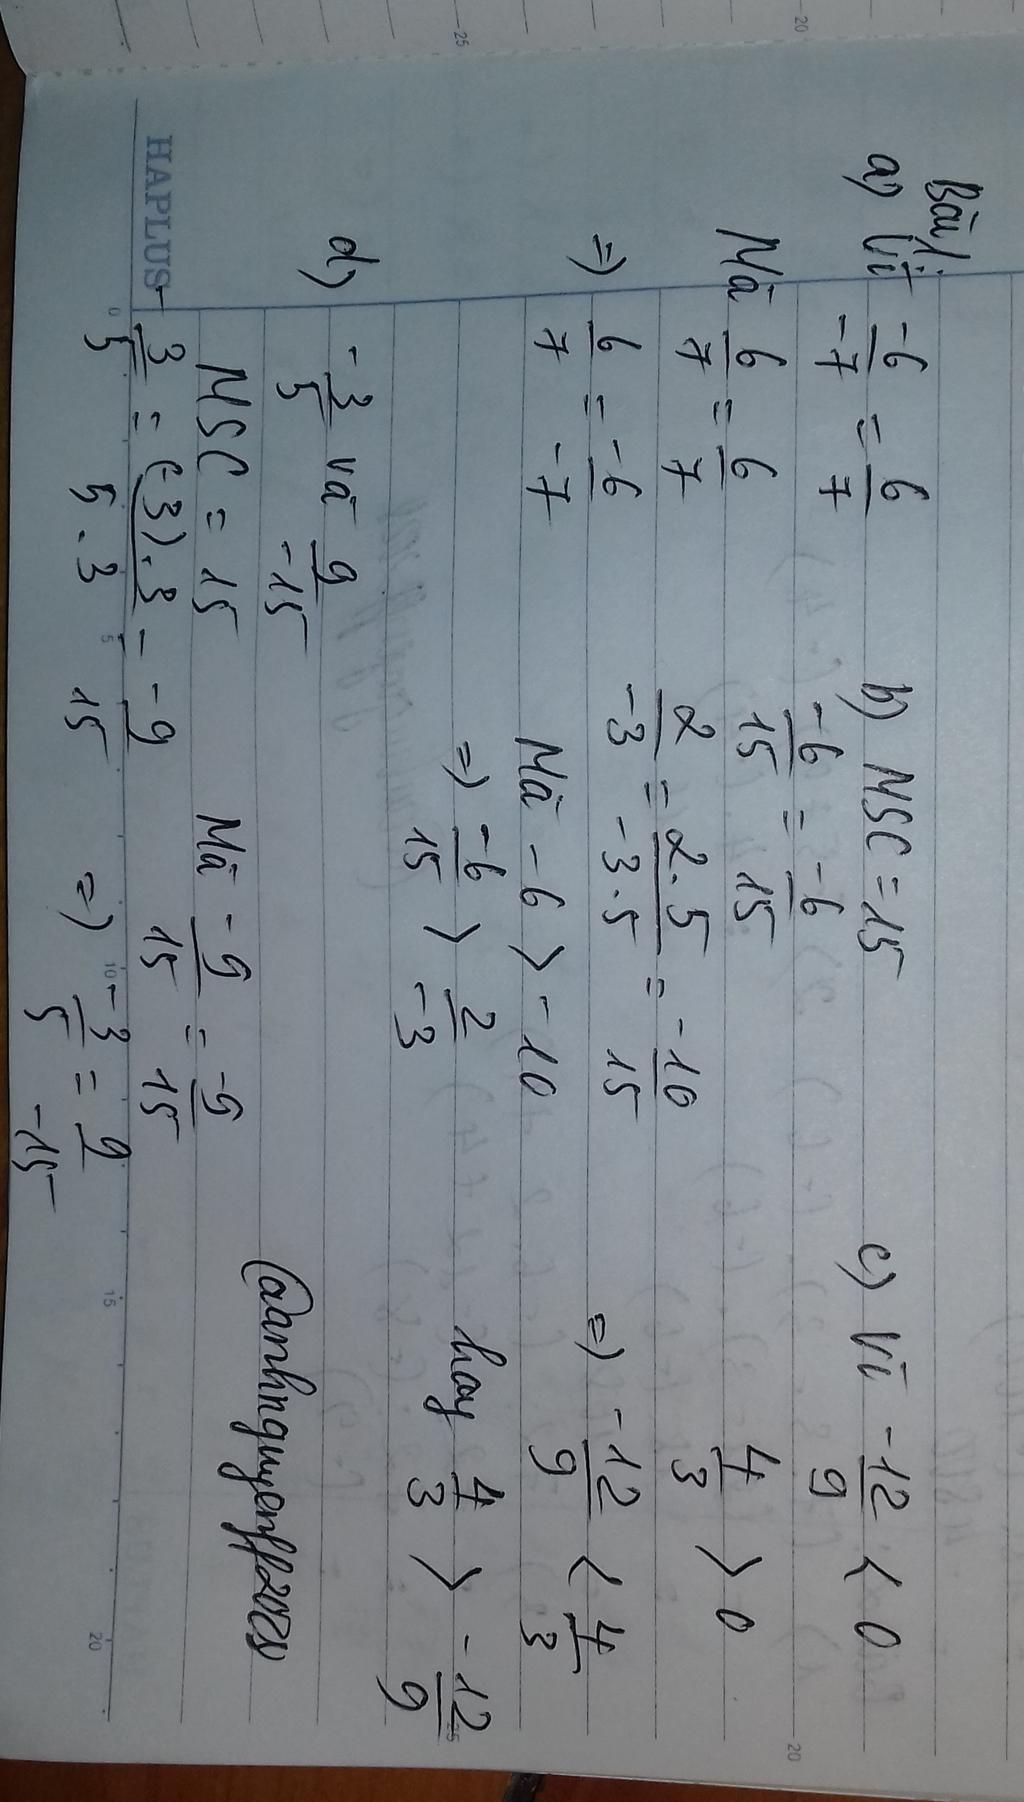 Bài 1:
a) Vì -6/-7 = 6/7
Mà 6/7 = 6/7
=> 6/7 = -6/-7
b) MSC = 15
-6/15 = -6/15
2/-3 = 2.5/-3.5 = -10/15
Mà -6 > -10
=> -6/15 > 2/-3
c) Vì -12/9 < 0
4/3 > 0
=> -12/9 < 4/3
hay 4/3 > -12/9
d) -3/5 và 9/-15
MSC = 15
-3/5 = (-3).3/5.3 = -9/15
Mà -9/15 = -9/15
=> -3/5 = 9/-15
HAPLUS
0 5 10 15 20
25
20
20